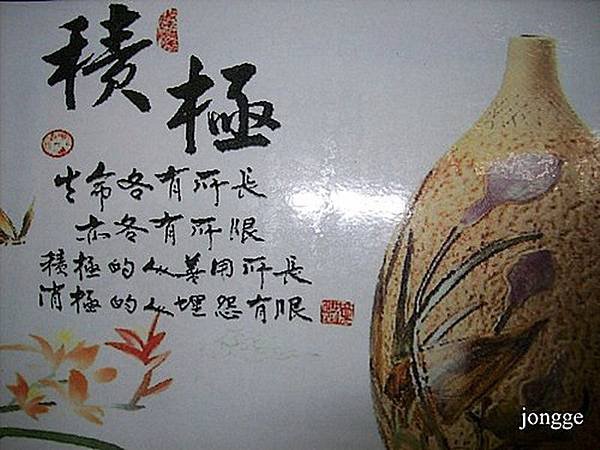 積極
生命各有所長
亦各有所限
積極的人善用所長
消極的人埋怨有限
jongge